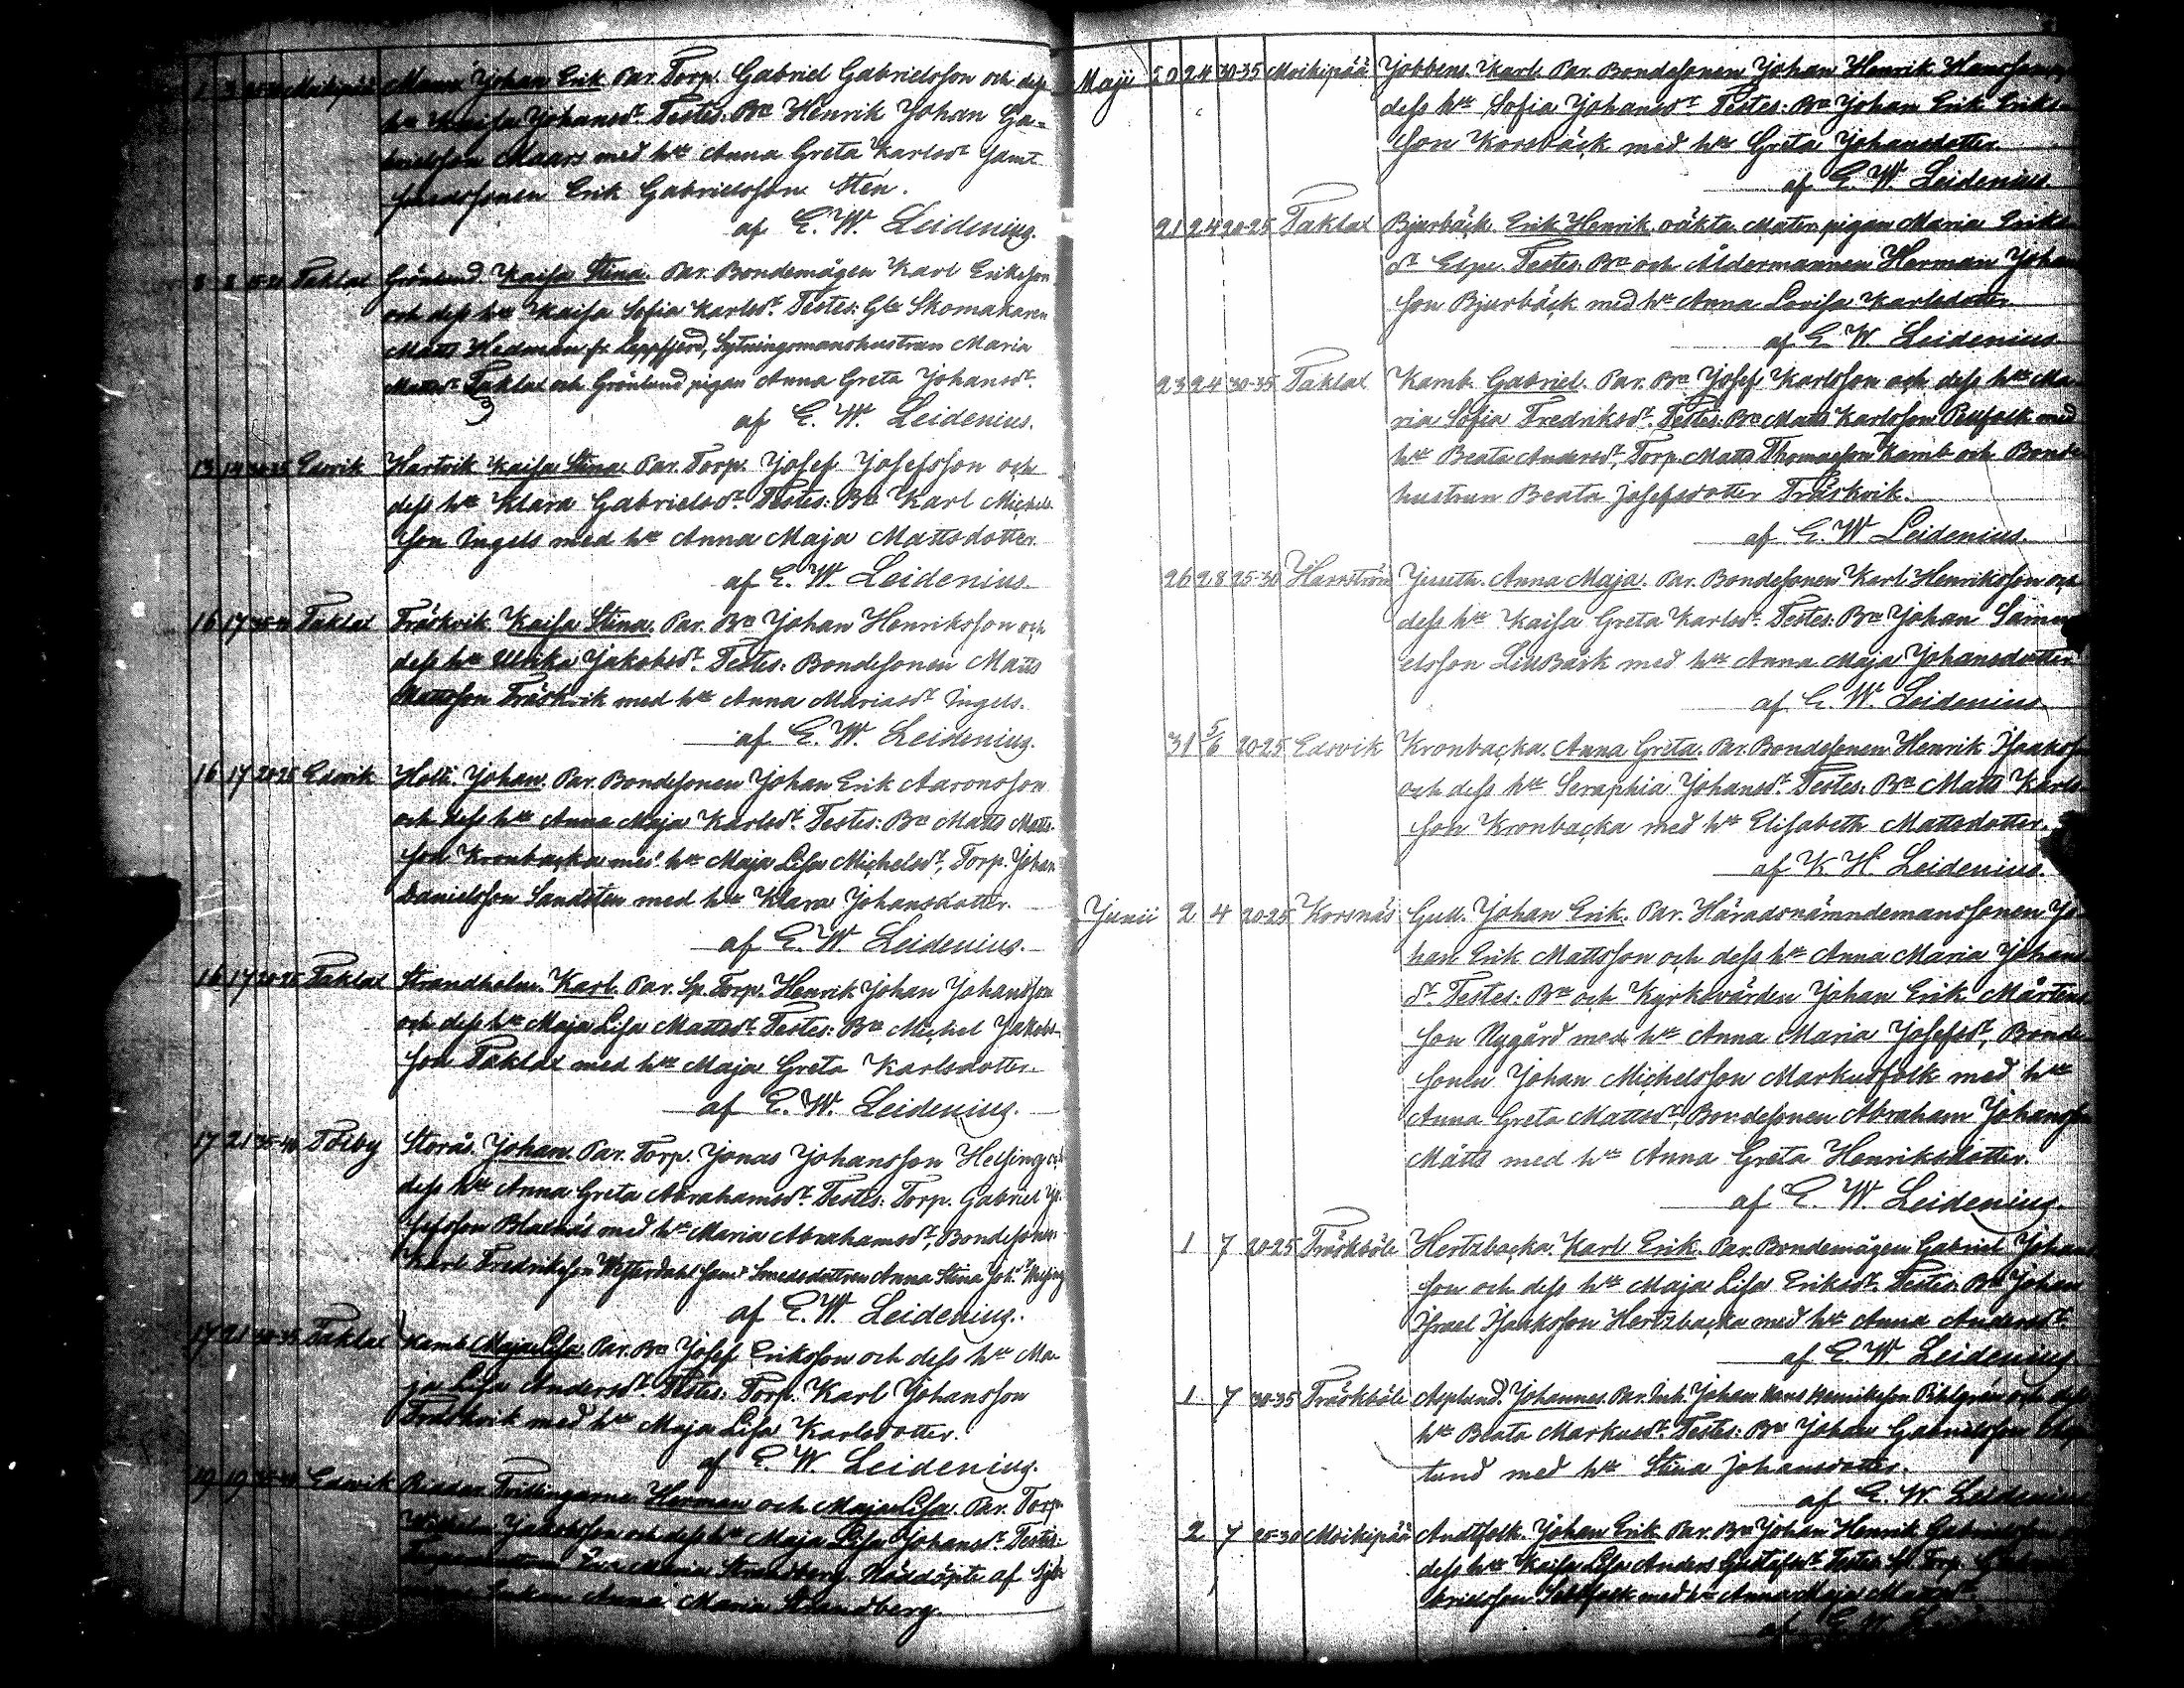 1 3 Moikipää Maans Johan Erik. Par. Torp. Gabriel Gabrielsson och dess
hu Kaisa Johansdr. Testes: Bn Henrik Johan Ga-
brielsson Maars med hu Anna Greta Karlsdr samt
Erik Gabrielsson Sten.
af E. W. Leidenius.
8 8 15-20 Taklax Grönlund. Kaisa Stina. Par. Bondemågen Karl Eriksson
och dess hu Kaisa Sofia Karlsdr. Testes: Gle Skomakaren
Matts Wedman fr. Lappfjerd, Sytningsmanshustrun Maria
Mattsdr Taklax och Grönlund pigan Anna Greta Johansdr.
af E. W. Leidenius.
13 14 Edsvik Hartvik Kaisa Stina. Par. Torp. Josef Josefsson och
dess hu Klara Gabrielsdr. Testes: Bn Karl Michels-
son Ingels med hu Anna Maja Mattsdotter.
af E. W. Leidenius.
16 17 Taklax Träskvik Kaisa Stina. Par. Bn Johan Henriksson och
dess hu Ulrika Jakobsdr. Testes: Bondesonen Matts
Mattsson Träskvik med hu Anna Mariasdr Ingels.
af E. W. Leidenius.
16 17 20-25 Edsvik Holti. Johan. Par. Bondesonen Johan Erik Aaronsson
och dess hu Anna Maja Karlsdr. Testes: Bn Matts Matts-
son Kronbacka med hu Maja Lisa Michelsdr, Torp. Johan
Danielsson Sandsten med hu Klara Johansdotter.
af E. W. Leidenius.
16 17 20-25 Taklax Strandholm. Karl. Par. Sp. Torp. Henrik Johan Johansson
och dess hu Maja Lisa Mattsdr. Testes: Bn Michel Jakobs-
son Taklax med hu Maja Greta Karlsdotter.
af E. W. Leidenius.
17 21 35-40 Töiby Storås. Johan. Par. Torp. Jonas Johansson Helsing och
dess hu Anna Greta Abrahamsdr. Testes: Torp. Gabriel Jo-
sefsson Blaxnäs med hu Maria Abrahamsdr, Bondesonen
Karl Fredriksson Westerdahl samt Smedsdottren Anna Stina Joh.dr Helsing
af E. W. Leidenius.
17 21 30-35 Taklax Kamb Maja Lisa. Par. Bn Josef Eriksson och dess hu Ma-
ja Lisa Andersdr. Testes: Torp. Karl Johansson
Träskvik med hu Maja Lisa Karlsdotter.
af E. W. Leidenius.
19 19 Edsvik Riddar. Tvillingarne Herman och Maja Lisa. Par. Torp.
Wilhelm Jakobsson och dess hu Maja Lisa Johansdr. Testis:
Maria Strandberg. Nöddöpte af
enkan Anna Maria Strandberg.
Maji 20 24 30-35 Moikipää Jobbens. Karl. Par. Bondesonen Johan Henrik Hansson
dess hu Sofia Johansdr. Testes: Bn Johan Erik Eriks-
son Korsbäck med hu Greta Johansdotter.
af E. W. Leidenius.
21 24 20-25 Taklax Bjurbäck. Erik Henrik. oäkta. Mater: pigan Maria Eriks-
dr Testes: Bn och Åldermannen Herman Johans-
son Bjurbäck med hu Anna Lovisa Karlsdotter.
af E. W. Leidenius.
23 24 30-35 Taklax Kamb. Gabriel. Par. Bn Josef Karlsson och dess hu Ma-
ria Sofia Fredriksdr. Testes: Bn Matts Karlsson Pellfolk med
hu Beata Andersdr, Torp. Matts Thomasson Kamb och Bonde-
hustrun Beata Josefsdotter Träskvik.
af E. W. Leidenius.
26 28 25-30 Harrström Juuth. Anna Maja. Par. Bondesonen Karl Henriksson och
dess hu Kaisa Greta Karlsdr. Testes: Bn Johan Samu-
elsson LillBäck med hu Anna Maja Johansdotter.
af E. W. Leidenius.
31 5/6 20-25 Edsvik Kronbacka. Anna Greta. Par. Bondesonen Henrik Isaksson
och dess hu Seraphia Johansdr. Testes: Bn Matts Karls-
son Kronbacka med hu Elisabeth Mattsdotter.
af K. H. Leidenius.
Junii 2 4 20-25 Korsnäs Gull. Johan Erik. Par. Häradsnämndemanssonen Jo-
han Erik Mattsson och dess hu Anna Maria Johans-
dr. Testes: Bn och Kyrkovärden Johan Erik Mårtens-
son Nygård med hu Anna Maria Josefsdr, Bonde-
sonen Johan Michelsson Markusfolk med hu
Anna Greta Mattsdr, Bondesonen Abraham Johansson
Mätts med hu Anna Greta Henriksdotter.
af E. W. Leidenius.
1 7 20-25 Träskböle Hertzbacka. Karl Erik. Par. Bondemågen Gabriel Johans-
son och dess hu Maja Lisa Eriksdr. Testes: Bn Johan
Israel Isaksson Hertzbacka med hu Anna Andersdr.
af E. W. Leidenius.
1 7 30-35 Träskböle Asplund. Johannes. Par. Inh. Johan Hans Henriksson Pihlgren och dess
hu Beata Markusdr. Testes: Bn Johan Gabrielsson Asp-
lund med hu Stina Johansdotter.
af E. W. Leidenius
2 7 25-30 Moikipää Andtfolk. Johan Erik. Par. Bn Johan Henrik Gabrielsson
dess hu Kaisa Lisa Anders Gustafsdr. Testes: Sp. Torp.
brielsson med hu Anna Maja Mattsdr.
af E. W.